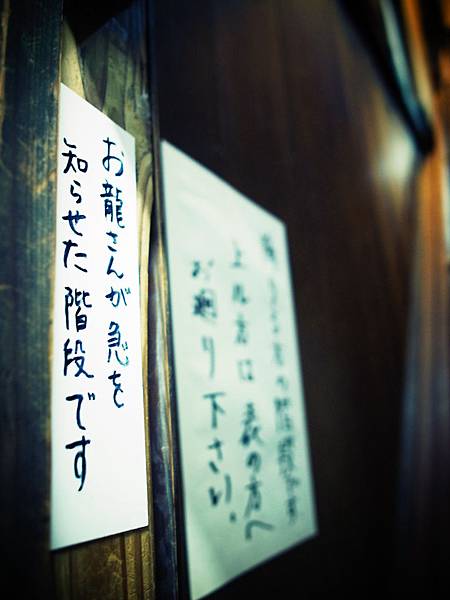 お龍さんが急を
知らせた階段です
上る方は表の方へ
お廻り下さい。